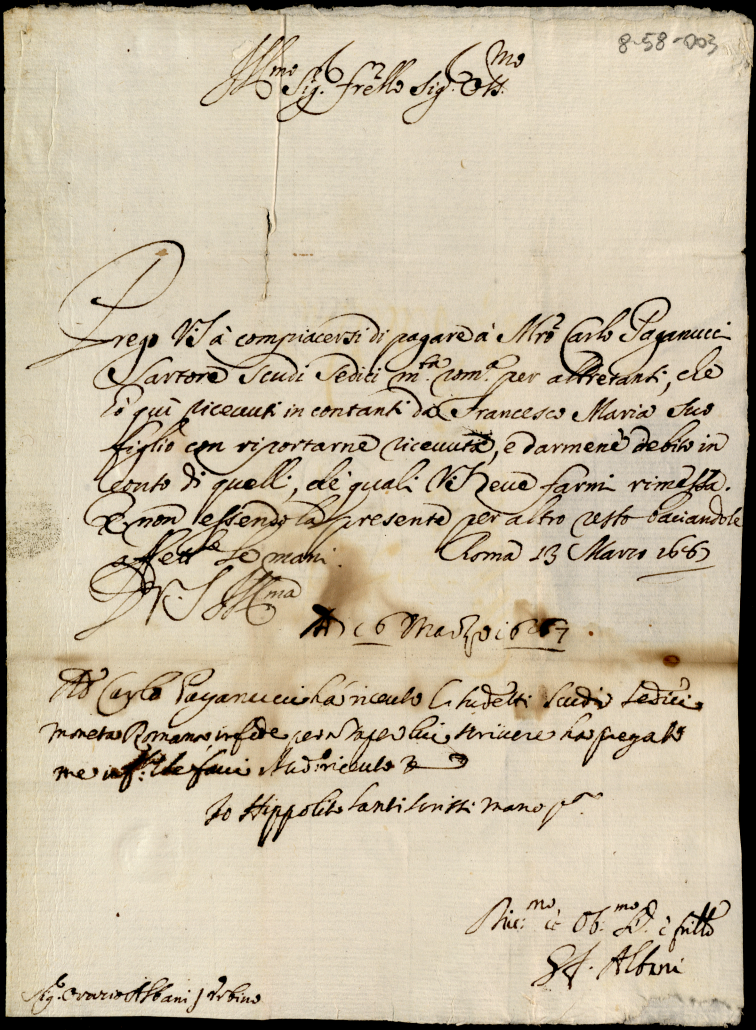 8-58-003
Ill.mo Sig.r frello Sig.r Oss.mo
Prego V.S. à compiacersi di pagare à Mrõ Carlo Paganucci
Sartore Scudi Sedici m.ta rom.a per altretanti, che
hò qui riceuuti in contanti da Francesco Maria suo
figlio con riportarne riceuuta, e darmene debito in
Conto di quelli, de quali V.S. deue farmi rimessa.
E non essendo la presente per altro resto baciandole
affett.te le mani. Roma 13 Marzo 1667
D V.S. Ill.ma
A di 16 Marzo 1667
Mo Carlo Paganucci ha riceuto li sudetti scudi sedici
moneta Romana, in fede per non saper lui scriuere ha pregato
me
Io Hippolito Santi scrissi mano pa
Diu.mo et Ob.mo S.re e frillo
Albani
Sig.r Orazio Albani Vrbino